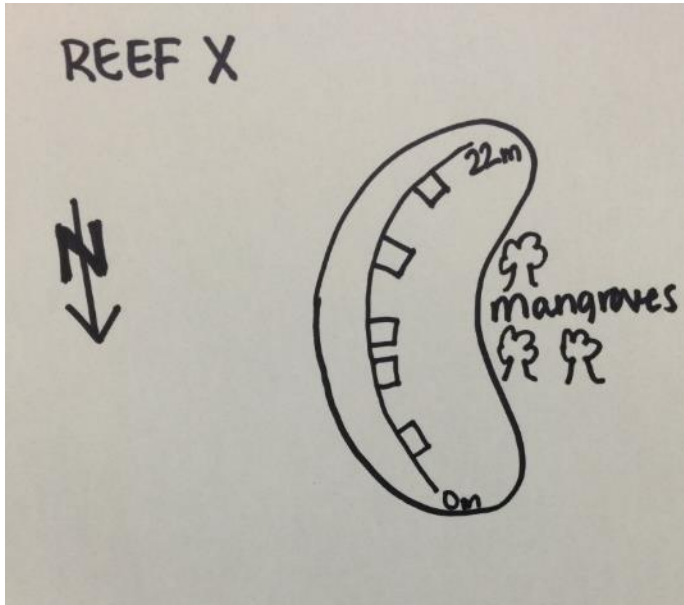 REEF X
22m
N
mangroves
0m